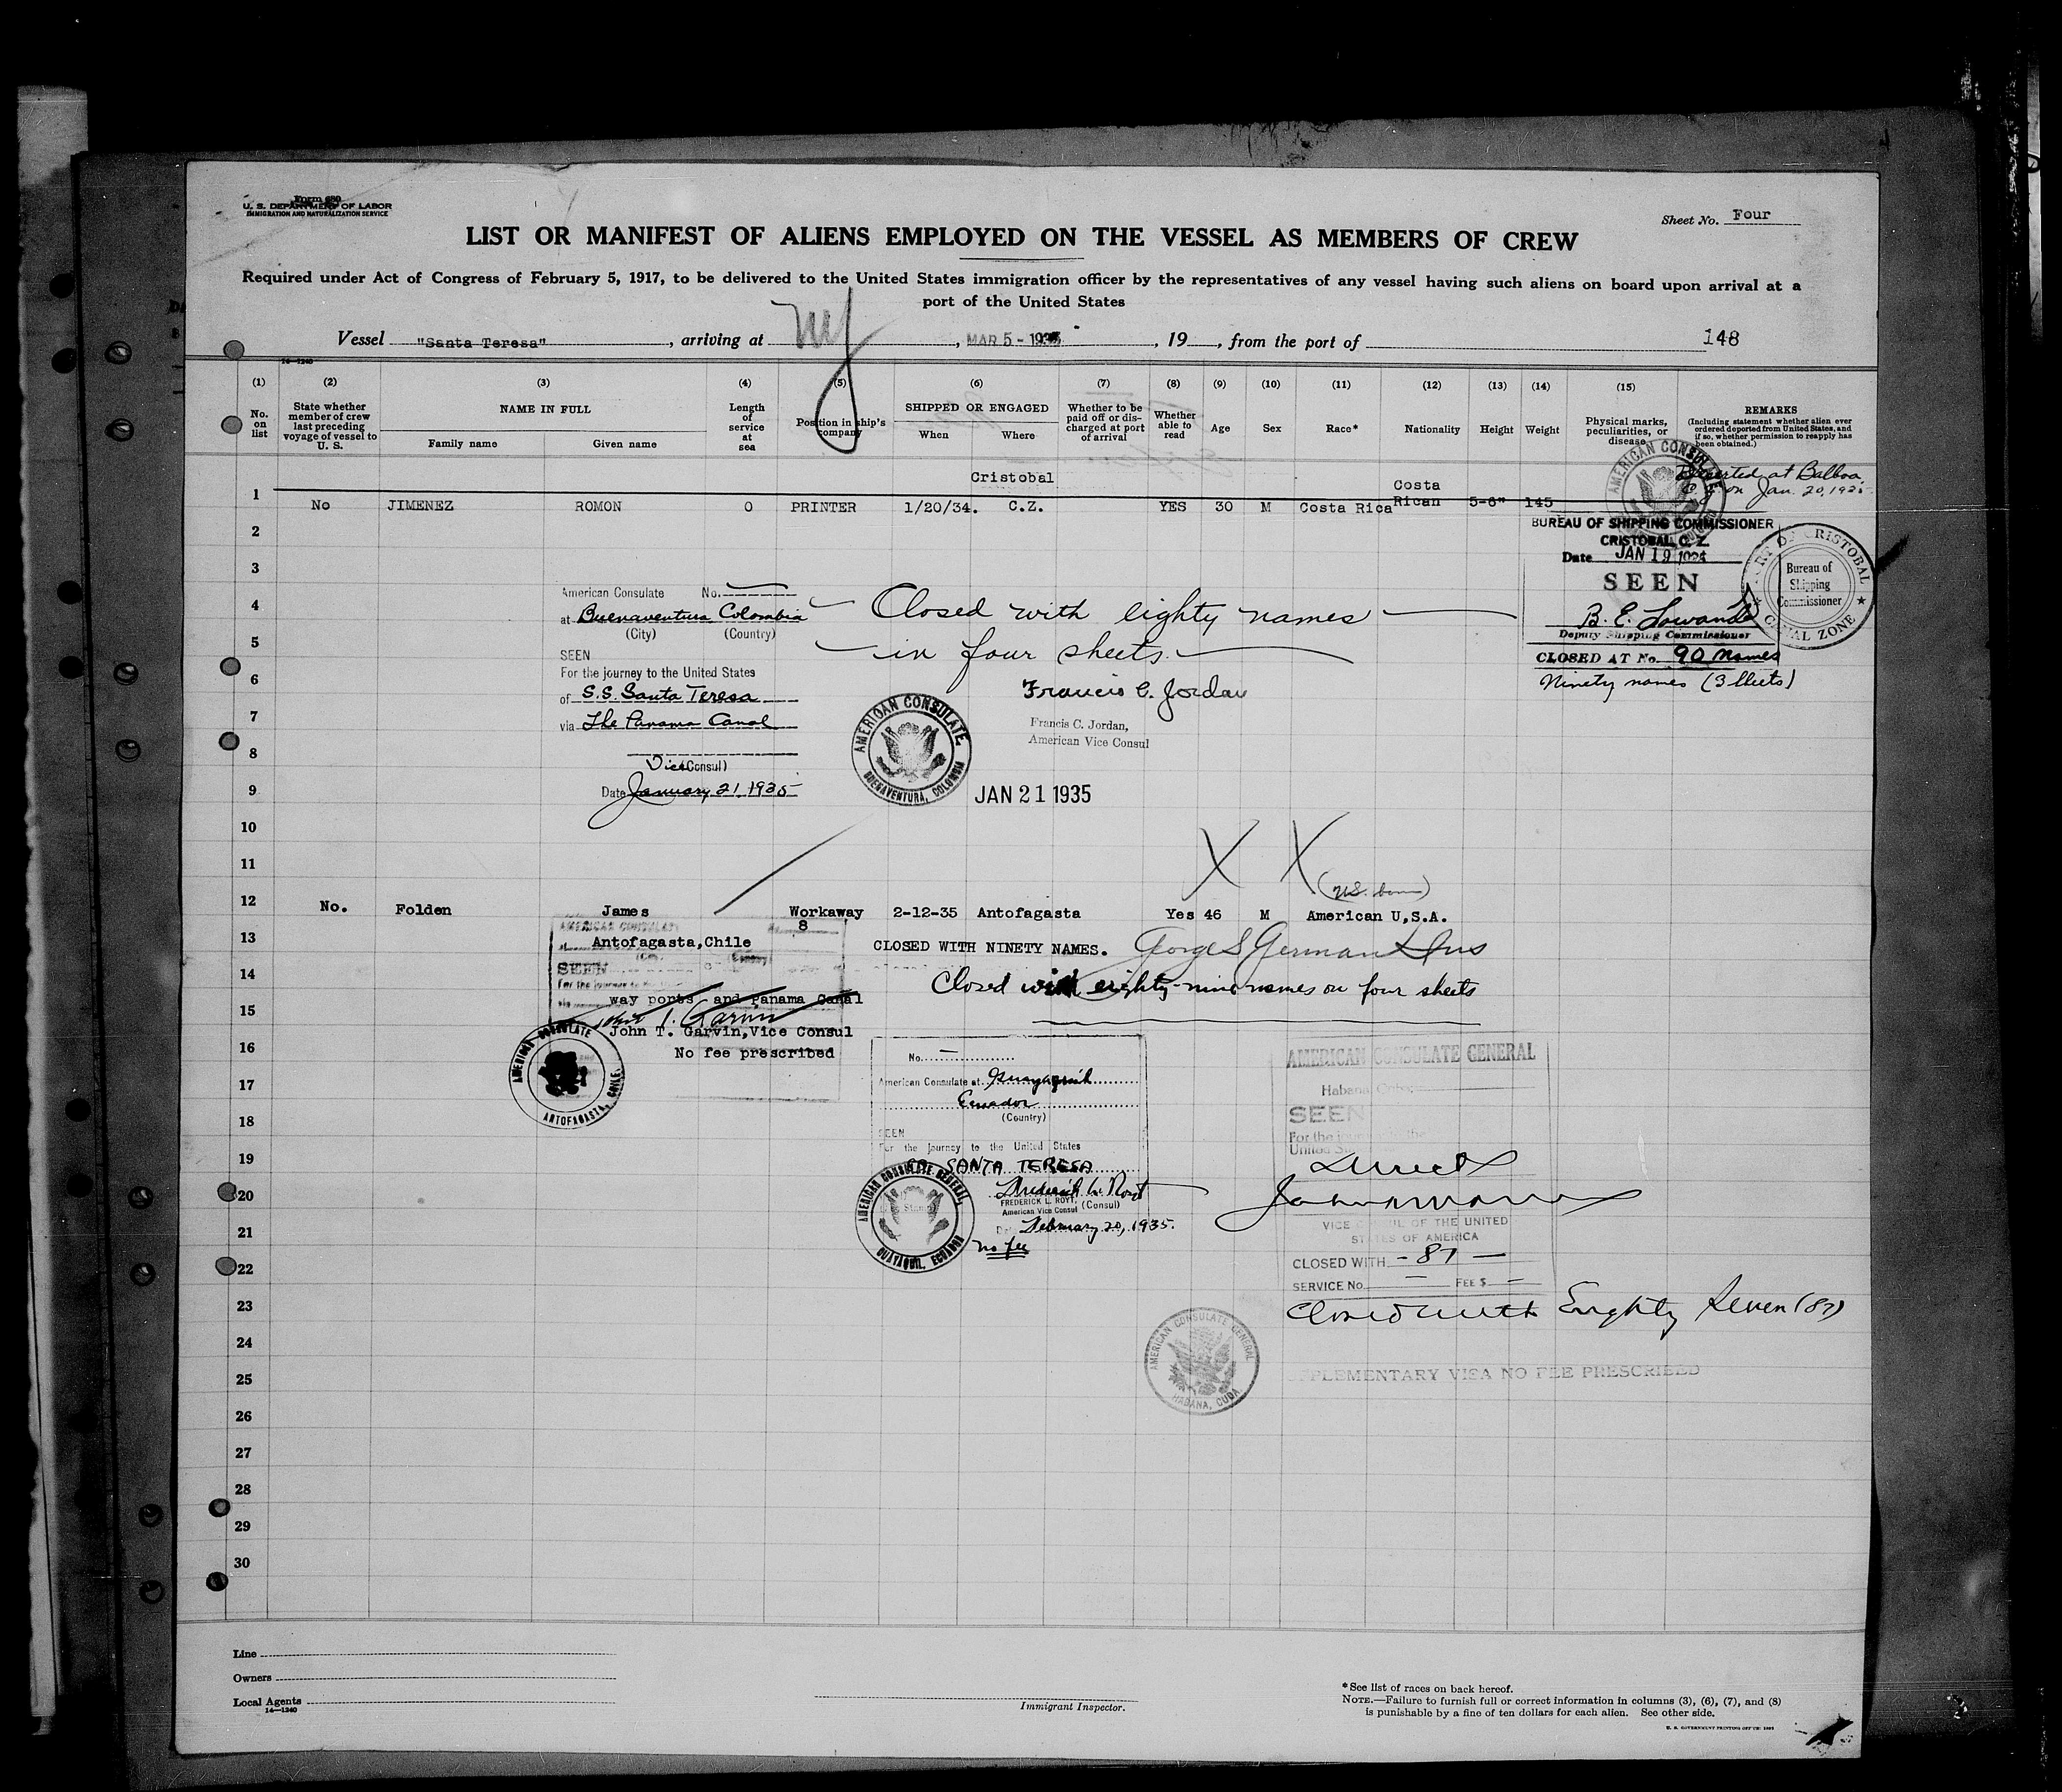 Form 680
U. S. DEPARTMENT OF LABOR
IMMIGRATION AND NATURALIZATION SERVICE
Sheet No. Four
LIST OR MANIFEST OF ALIENS EMPLOYED ON THE VESSEL AS MEMBERS OF CREW
Required under Act of Congress of February 5, 1917, to be delivered to the United States immigration officer by the representatives of any vessel having such aliens on board upon arrival at a
port of the United States
Vessel "Santa Teresa", arriving at NY, MAR 5 - 1935, 19 , from the port of 148
14—1240
(1) (2) (3) (4) (5) (6) (7) (8) (9) (10) (11) (12) (13) (14) (15)
No. on list
State whether member of crew last preceding voyage of vessel to U. S.
NAME IN FULL
Family name
Given name
Length of service at sea
Position in ship's company
SHIPPED OR ENGAGED
When
Where
Whether to be paid off or discharged at port of arrival
Whether able to read
Age
Sex
Race*
Nationality
Height
Weight
Physical marks, peculiarities, or disease
REMARKS
(Including statement whether alien ever ordered deported from United States, and if so, whether permission to reapply has been obtained.)
1 No JIMENEZ ROMON 0 PRINTER 1/20/34. Cristobal C.Z. YES 30 M Costa Rica Costa Rican 5-6" 145
Deserted at Balboa
C. Z. on Jan. 20, 1935
AMERICAN CONSUL
BUREAU OF SHIPPING COMMISSIONER
CRISTOBAL, C. Z.
Date JAN 19 1934
SEEN
B. E. Lowande
Deputy Shipping Commissioner
CLOSED AT No. 90 names
Ninety names (3 Sheets)
PORT OF CRISTOBAL
Bureau of
Shipping
Commissioner
CANAL ZONE
2
3
4
5
6
7
8
9
10
11
American Consulate No.
at Buenaventura Colombia
(City) (Country)
SEEN
For the journey to the United States
of S.S. Santa Teresa
via The Panama Canal
Vice (Consul)
Date January 21, 1935
Closed with eighty names
in four sheets.
Francis C. Jordan
Francis C. Jordan,
American Vice Consul
AMERICAN CONSULATE
BUENAVENTURA, COLOMBIA
JAN 21 1935
X X
(U.S. born)
12 No. Folden James Workaway 2-12-35 Antofagasta Yes 46 M American U.S.A.
13
14
15
16
17
18
19
20
21
22
23
24
25
26
27
28
29
30
AMERICAN CONSULATE
8
Antofagasta, Chile
SEEN
For the journey to the
way ports and Panama Canal
John T. Garvin
John T. Garvin, Vice Consul
No fee prescribed
AMERICAN CONSULATE
ANTOFAGASTA, CHILE.
CLOSED WITH NINETY NAMES.
Closed with eighty-nine names on four sheets
No.
American Consulate at Guayaquil
Ecuador
(Country)
SEEN
For the journey to the United States
SS SANTA TERESA
FREDERICK L. ROYT,
American Vice Consul
(Consul)
February 20, 1935.
no fee
AMERICAN CONSULATE GENERAL
GUAYAQUIL, ECUADOR
AMERICAN CONSULATE GENERAL
Habana, Cuba
SEEN
For the journey to the
United States
Direct
VICE CONSUL OF THE UNITED
STATES OF AMERICA
CLOSED WITH - 87 -
SERVICE No. — FEE $ —
Closed with Eighty Seven (87)
AMERICAN CONSULATE GENERAL
HABANA, CUBA
SUPPLEMENTARY VISA NO FEE PRESCRIBED
Line
Owners
Local Agents
14—1240
Immigrant Inspector.
*See list of races on back hereof.
NOTE.—Failure to furnish full or correct information in columns (3), (6), (7), and (8)
is punishable by a fine of ten dollars for each alien. See other side.